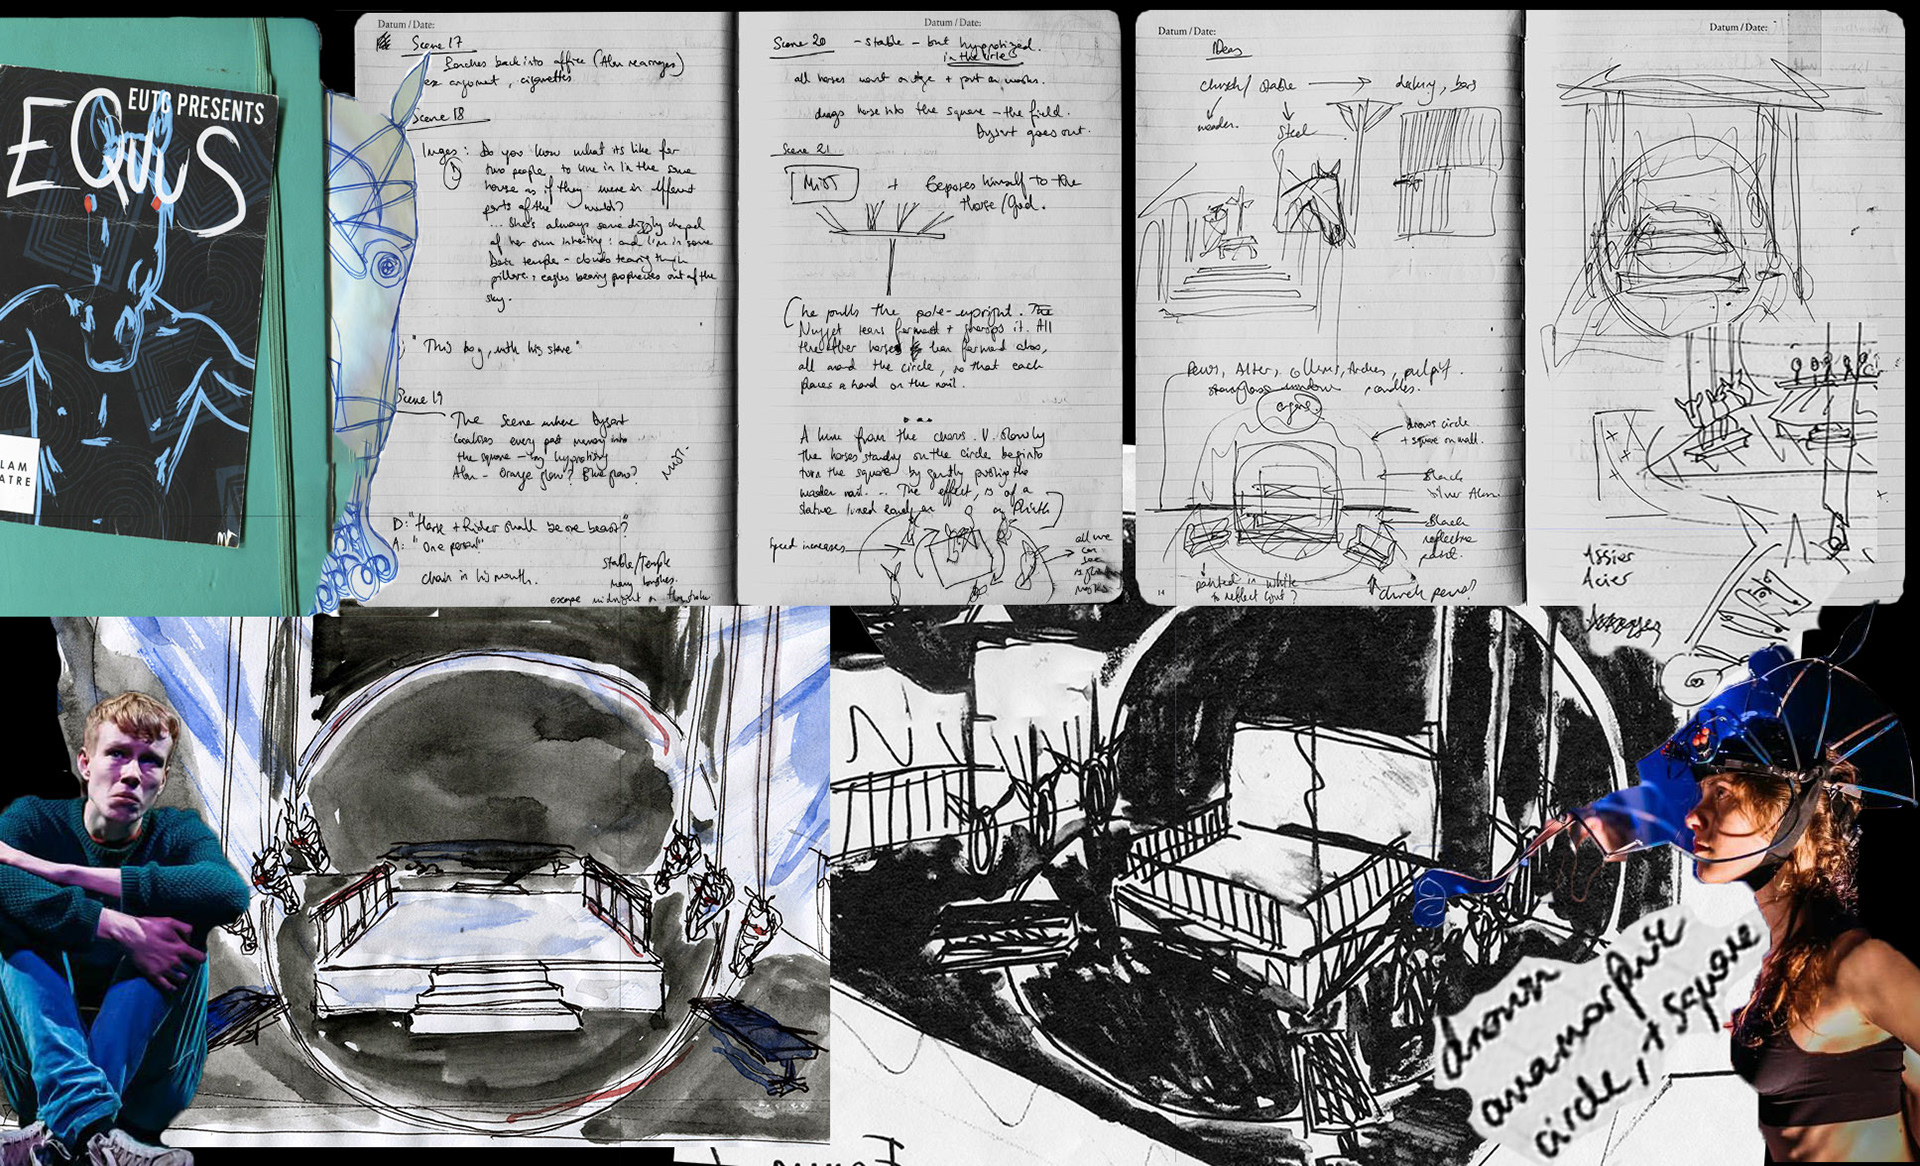 EUTC PRESENTS
EQUUS
LAM
ATRE
Datum / Date:
Scene 17
back into office (Alan rearranges)
argument, cigarettes
Scene 18
Do you know what its like for
two people to live in in the same
house as if they were in different
parts of the world?
... She's always some dizzly chapel
of her own inheriting: and I'm in some
Doric temple - clouds tearing through
pillars, eagles bearing prophecies out of the
sky.
"This boy, with his stare"
Scene 19
The scene where Dysart
localises every past memory into
the square - by hypnotising
Alan - Orange glow? Blue glow?
MIST.
D: "Horse + Rider shall be one beast?"
A: "One person"
chain in his mouth.
Stable/Temple
many brushes.
escape midnight
Datum / Date:
Scene 20 - stable - but hypnotized.
in the circle
all horses wait on edge + put on masks.
drags horse into the square - the field.
Dysart goes out.
Scene 21
MIST + Exposes himself to the
Horse/God.
(he pulls the pole - upright. The
Nugget leans forward + grasps it. All
the other horses lean forward also,
all around the circle, so that each
places a hand on the rail.
...
A hum from the chorus. V. slowly
the horses standing on the circle begin to
turn the square by gently pushing the
wooden rail. .. The effect, is of a
statue turned slowly on a Plinth
Speed increases
all we
can
see
Datum / Date:
Ideas
church / stable → bars
wooden.
Steel
Pews, Alter, columns, Arches, pulpit.
window candles.
draws circle
+ square on wall.
Black
Silver
Black
reflective
paint.
painted in white
to reflect light?
church pews?
14
Datum / Date:
Assier
Acier
drawn
anamorphic
circle, + square